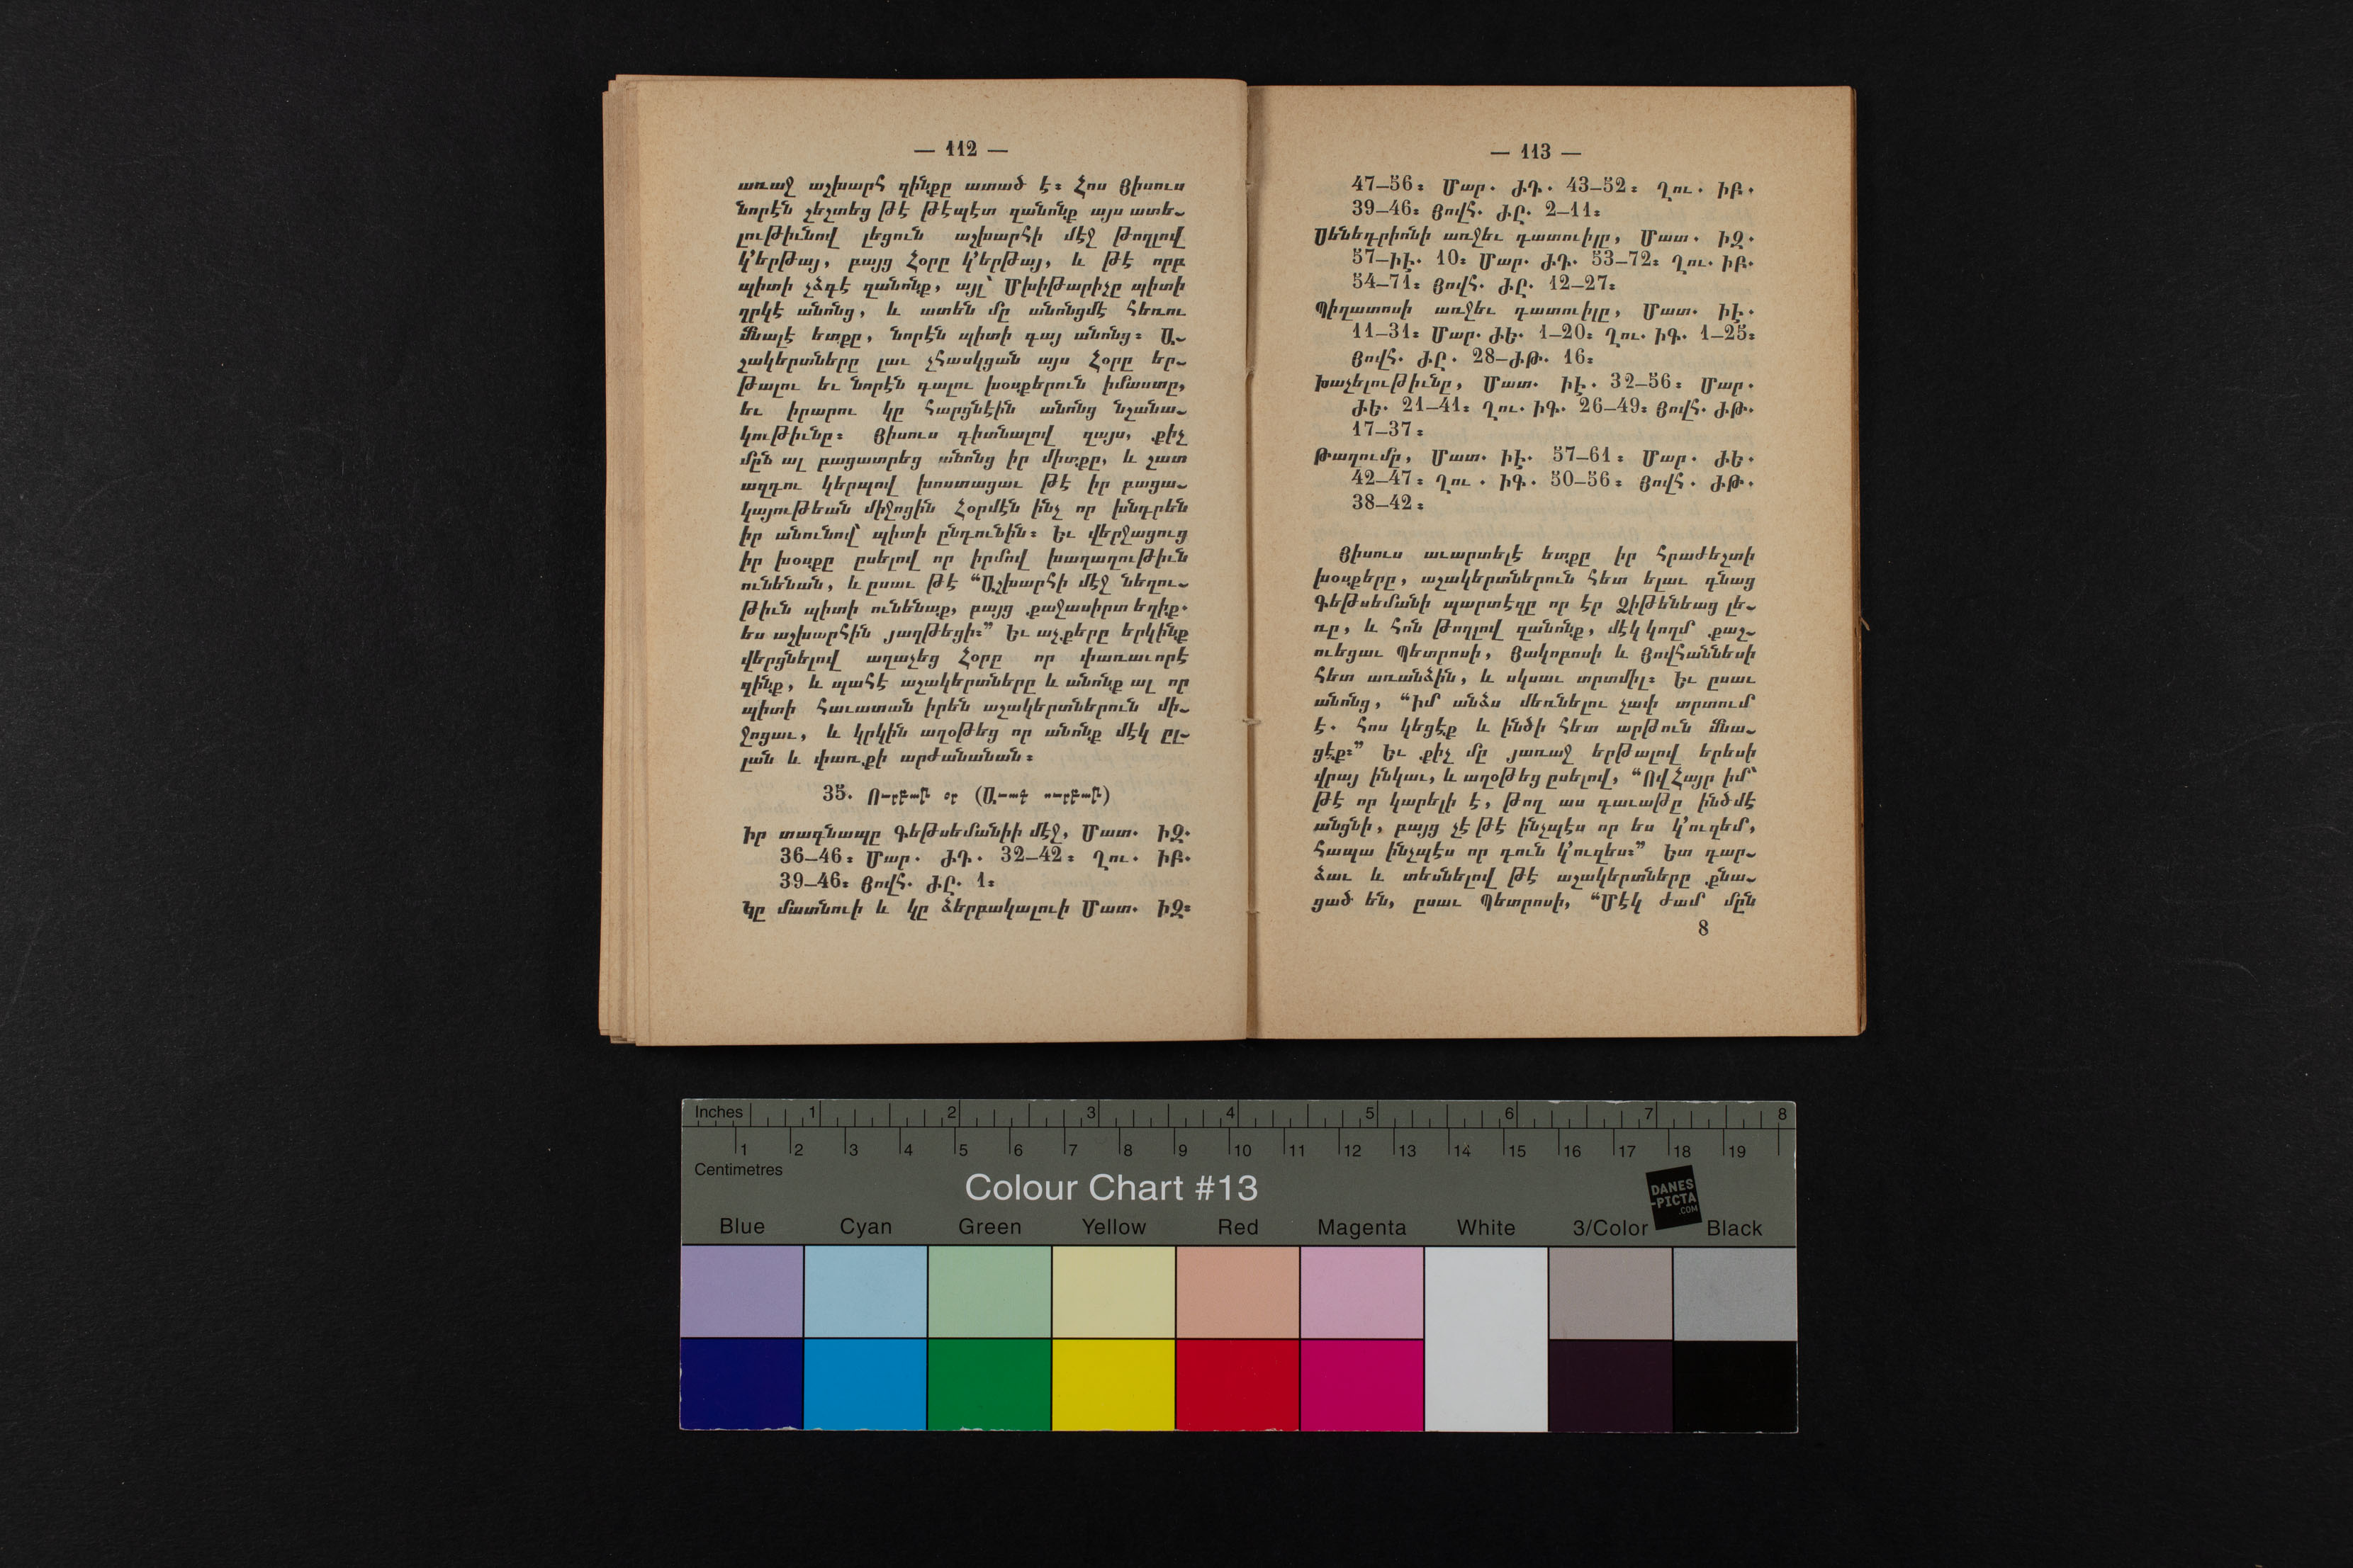 — 112 —
առաջ աշխարհ զինքը ատած է։ Հոս Յիսուս
նորէն շեշտեց թէ թէպէտ զանոնք այս ատե֊
լութիւնով լեցուն աշխարհի մէջ թողլով
կ՚երթայ, բայց Հօրը կ՚երթայ, և թէ որբ
պիտի չձգէ զանոնք, այլ՝ Մխիթարիչը պիտի
ղրկէ անոնց, և ատեն մը անոնցմէ հեռու
մնալէ ետքը, նորէն պիտի գայ անոնց։ Ա֊
շակերտները լաւ չհասկցան այս Հօրը եր֊
թալու եւ նորէն գալու խօսքերուն իմաստը,
եւ իրարու կը հարցնէին անոնց նշանա֊
կութիւնը։ Յիսուս գիտնալով զայս, քիչ
մըն ալ բացատրեց անոնց իր միտքը, և շատ
ազդու կերպով խոստացաւ թէ իր բացա֊
կայութեան միջոցին Հօրմէն ինչ որ խնդրեն
իր անունով՝ պիտի ընդունին։ Եւ վերջացուց
իր խօսքը ըսելով որ իրմով խաղաղութիւն
ունենան, և ըսաւ թէ “Աշխարհի մէջ նեղու֊
թիւն պիտի ունենաք, բայց քաջասիրտ եղիք.
ես աշխարհին յաղթեցի։” Եւ աչքերը երկինք
վերցնելով աղաչեց Հօրը որ փառաւորէ
զինք, և պահէ աշակերտները և անոնք ալ որ
պիտի հաւատան իրեն աշակերտներուն մի֊
ջոցաւ, և կրկին աղօթեց որ անոնք մէկ ըլ֊
լան և փառքի արժանանան։
35. Ուրբաթ օր (Աւագ ուրբաթ)
Իր տագնապը Գեթսեմանիի մէջ, Մատ. ԻԶ.
36–46։ Մար. ԺԴ. 32–42։ Ղու. ԻԲ.
39–46։ Յովհ. ԺԸ. 1։
Կը մատնուի և կը ձերբակալուի Մատ. ԻԶ։
— 113 —
47–56։ Մար. ԺԴ. 43–52։ Ղու. ԻԲ.
39–46։ Յովհ. ԺԸ. 2–11։
Սենեդրիոնի առջեւ դատուիլը, Մատ. ԻԶ.
57–ԻԷ. 10։ Մար. ԺԴ. 53–72։ Ղու. ԻԲ.
54–71։ Յովհ. ԺԸ. 12–27։
Պիղատոսի առջեւ դատուիլը, Մատ. ԻԷ.
11–31։ Մար. ԺԵ. 1–20։ Ղու. ԻԳ. 1–25։
Յովհ. ԺԸ. 28–ԺԹ. 16։
Խաչելութիւնը, Մատ. ԻԷ. 32–56։ Մար.
ԺԵ. 21–41։ Ղու. ԻԳ. 26–49։ Յովհ. ԺԹ.
17–37։
Թաղումը, Մատ. ԻԷ. 57–61։ Մար. ԺԵ.
42–47։ Ղու. ԻԳ. 50–56։ Յովհ. ԺԹ.
38–42։
Յիսուս աւարտելէ ետքը իր հրաժեշտի
խօսքերը, աշակերտներուն հետ ելաւ գնաց
Գեթսեմանի պարտէզը որ էր Ձիթենեաց լե֊
ռը, և հոն թողլով զանոնք, մէկ կողմ քաշ֊
ուեցաւ Պետրոսի, Յակոբոսի և Յովհաննեսի
հետ առանձին, և սկսաւ տրտմիլ։ Եւ ըսաւ
անոնց, “Իմ անձս մեռնելու չափ տրտում
է. հոս կեցէք և ինծի հետ արթուն մնա֊
ցէք։” Եւ քիչ մը յառաջ երթալով երեսի
վրայ ինկաւ, և աղօթեց ըսելով, “Ով Հայր իմ՝
թէ որ կարելի է, թող աս գաւաթը ինծմէ
անցնի, բայց չէ թէ ինչպէս որ ես կ՚ուզեմ,
հապա ինչպէս որ դուն կ՚ուզես։” Ետ դար֊
ձաւ և տեսնելով թէ աշակերտները քնա֊
ցած են, ըսաւ Պետրոսի, “Մէկ ժամ մըն
8
Inches 1 2 3 4 5 6 7 8
1 2 3 4 5 6 7 8 9 10 11 12 13 14 15 16 17 18 19
Centimetres
Colour Chart #13
DANES
-PICTA
.COM
Blue Cyan Green Yellow Red Magenta White 3/Color Black